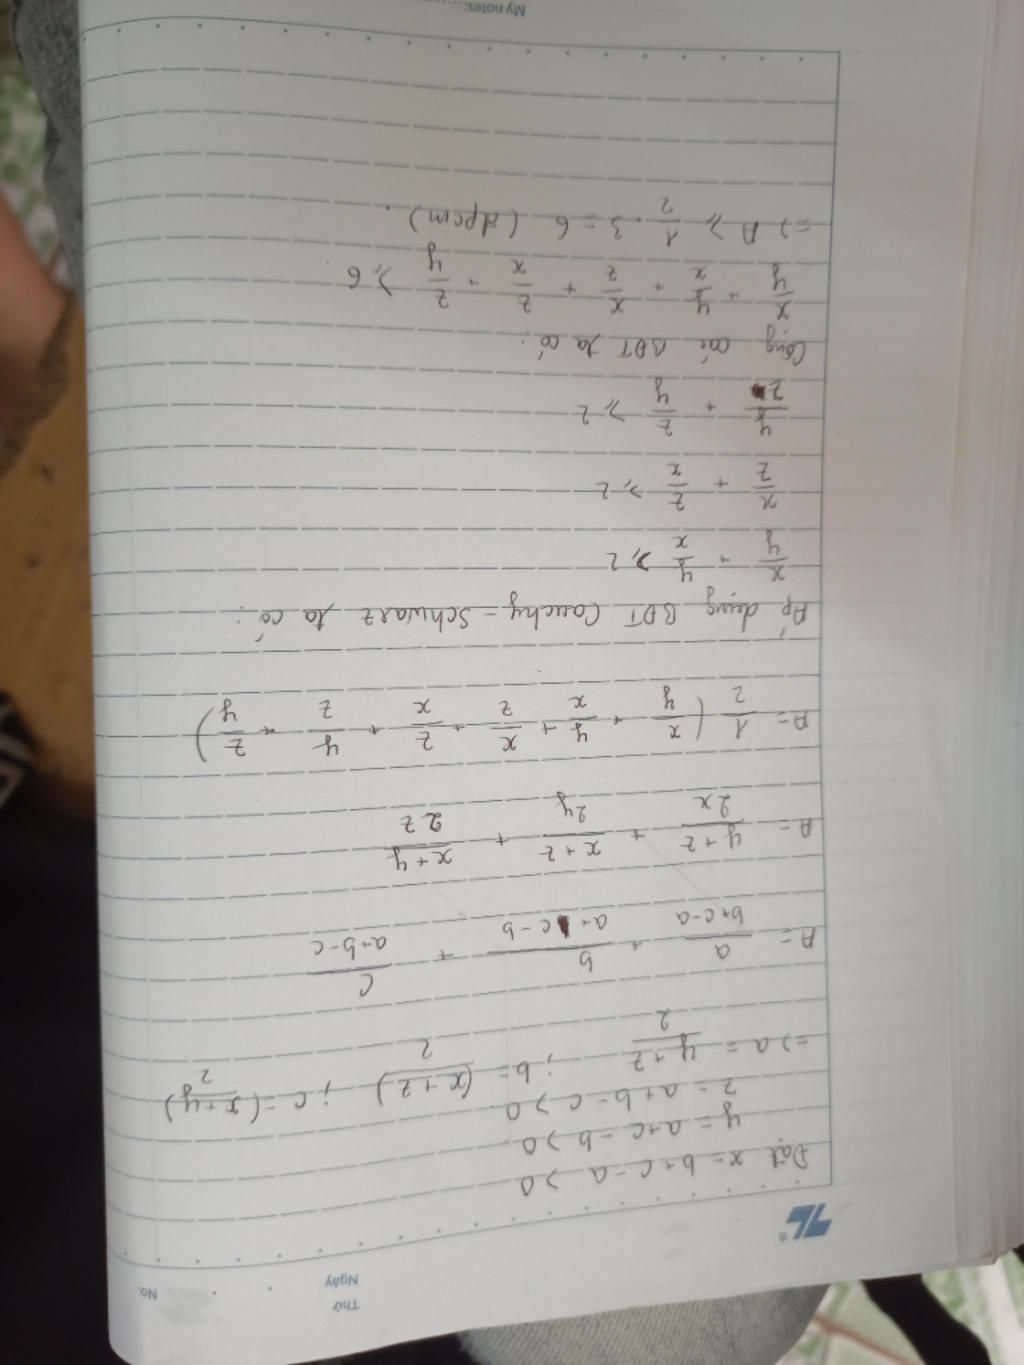 Thứ
Ngày
No.
TL
Đặt x = b+c-a > 0
y = a+c-b > 0
z = a+b-c > 0
=> a = (y+z)/2 ; b = (x+z)/2 ; c = (x+y)/2
A = a/(b+c-a) + b/(a+c-b) + c/(a+b-c)
A = (y+z)/2x + (x+z)/2y + (x+y)/2z
A = 1/2 (x/y + y/x + x/z + z/x + y/z + z/y)
Áp dụng BĐT Cauchy-Schwarz ta có:
x/y + y/x ≥ 2
x/z + z/x ≥ 2
y/z + z/y ≥ 2
Cộng các BĐT ta có:
x/y + y/x + x/z + z/x + z/y ≥ 6
=> A ≥ 1/2 . 3 = 6 (đpcm).
My notes: